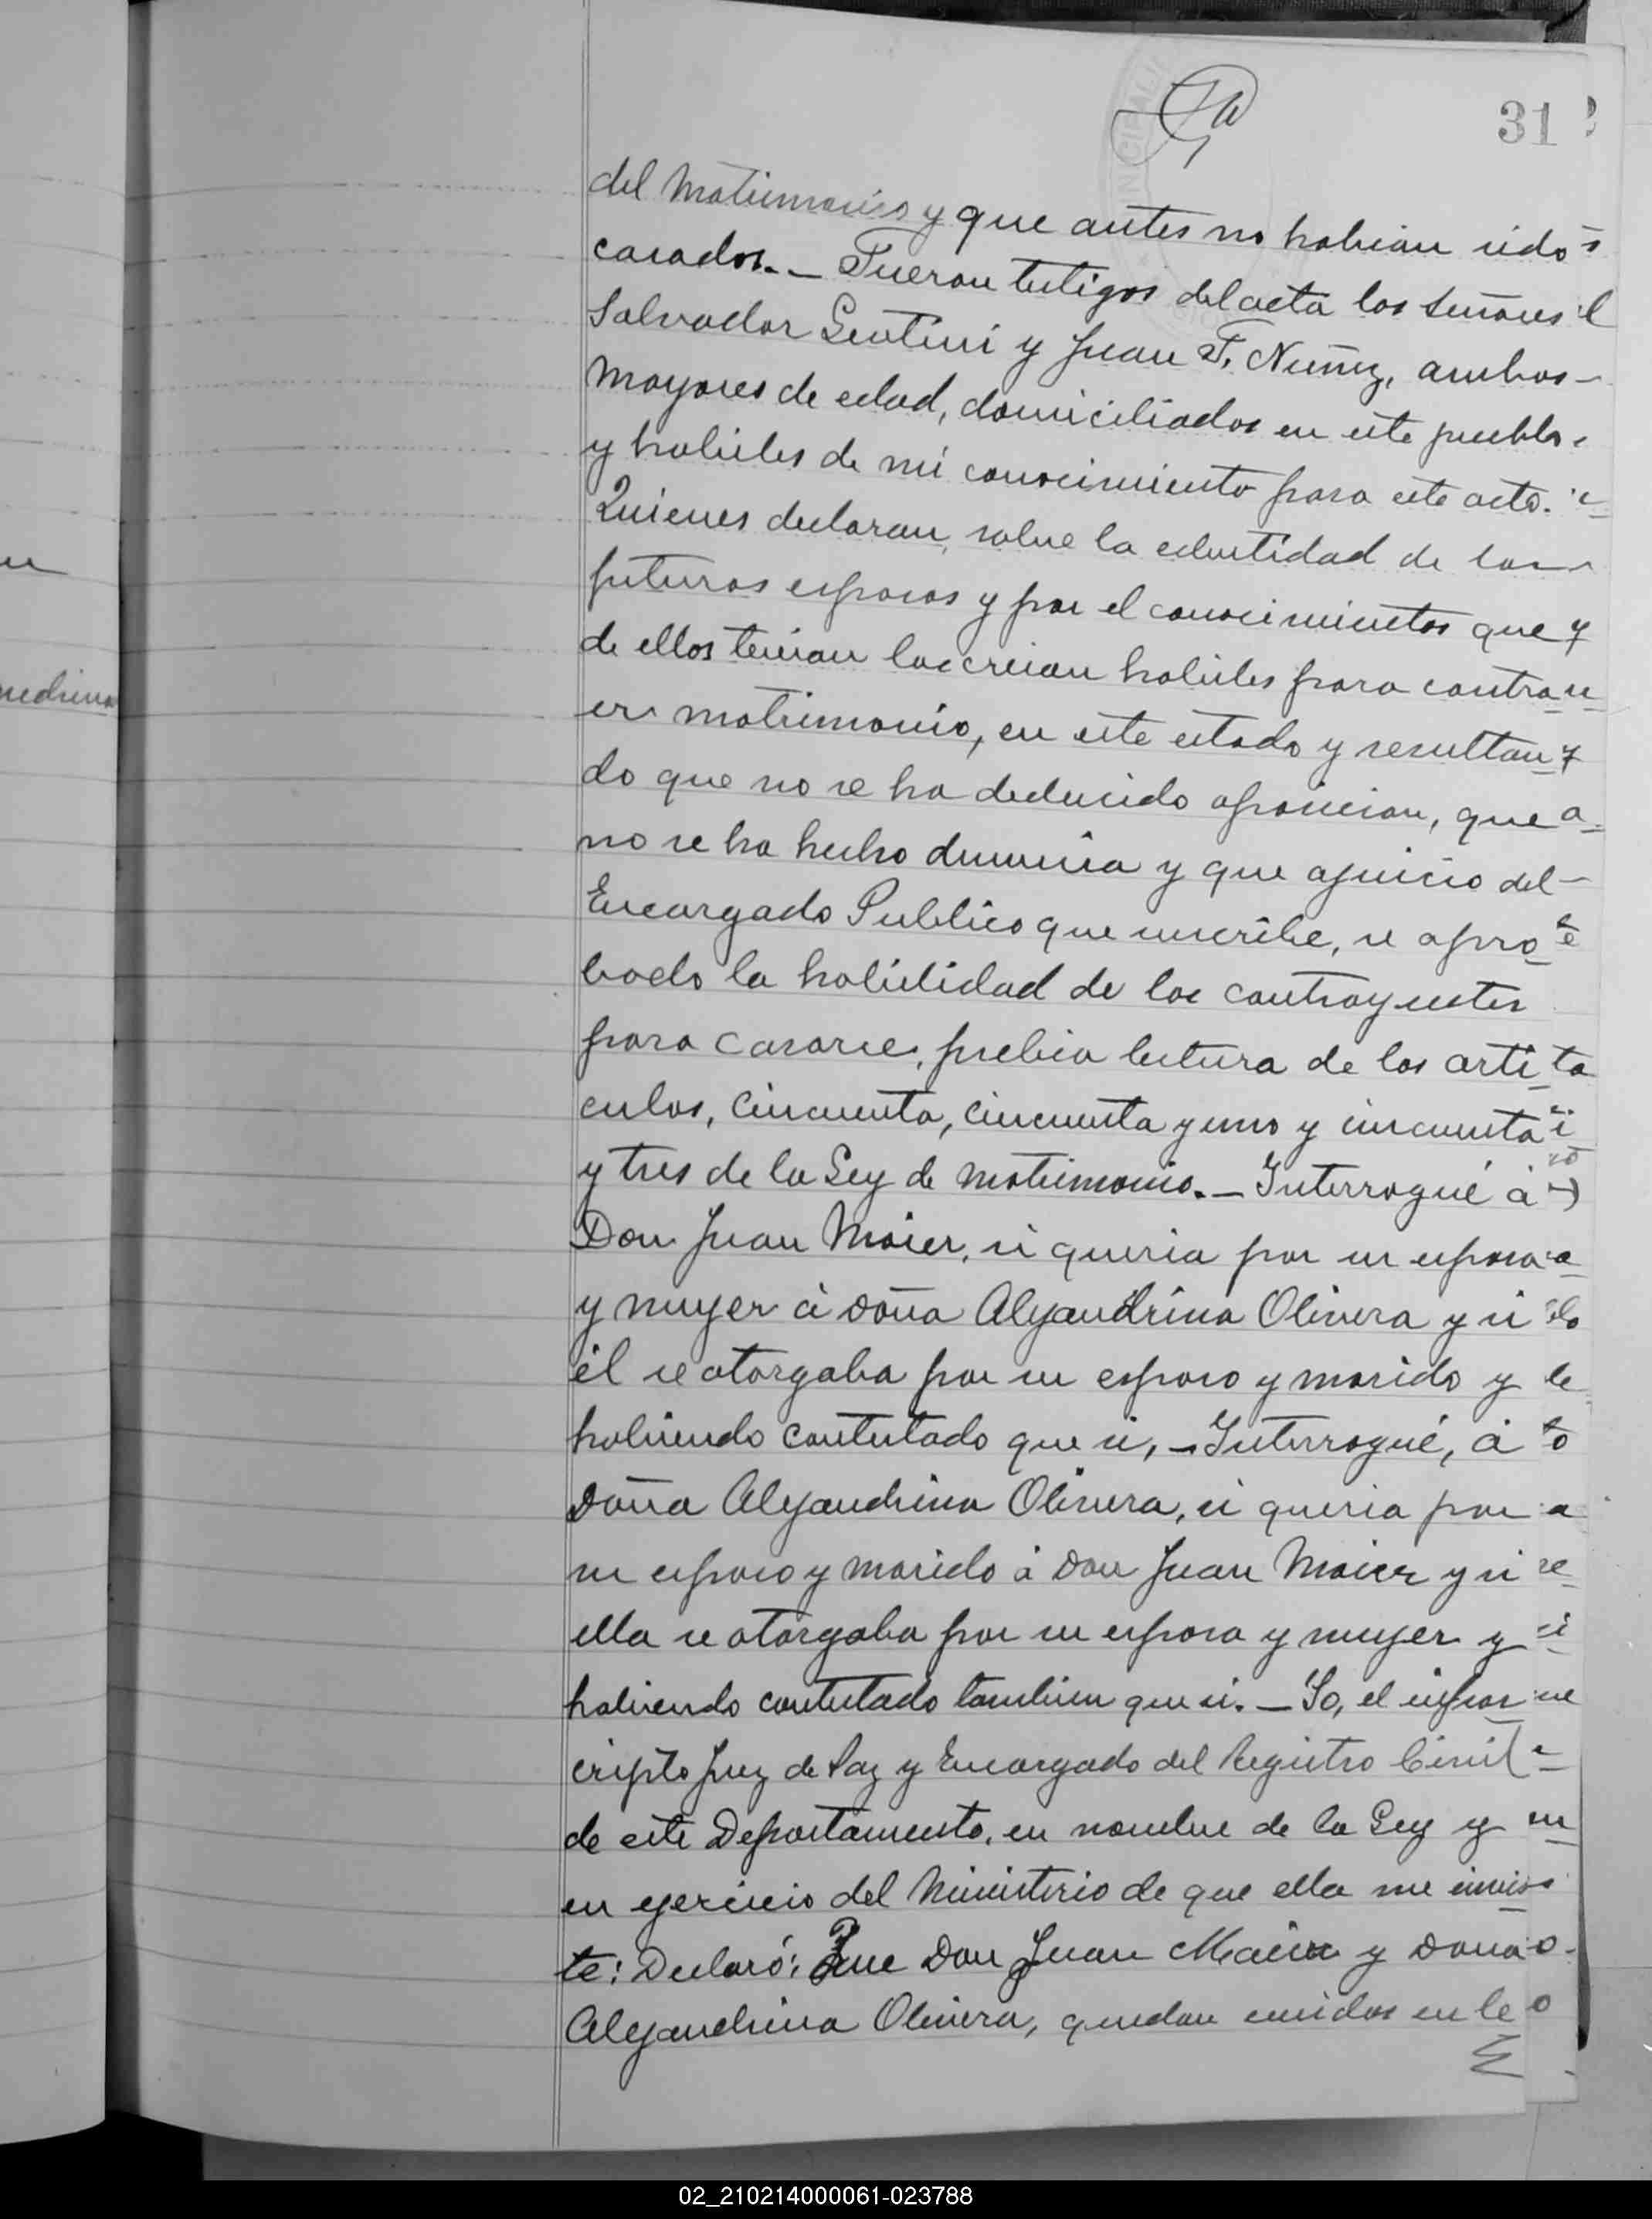 31
del Matrimonio y que antes no habian sido
casados._ Fueron testigos del acta los Señores
Salvador Gentini y Juan F. Nuñez, ambos
mayores de edad, domiciliados en este pueblo
y habiles de mi conocimiento para este acto.
Quienes declaran, sobre la edentidad de los
futuros esposos y por el conocimientos que
de ellos tenian los creian habiles para contra
er matrimonio, en este estado y resultan
do que no se ha deducido oposicion, que
no se ha hecho denuncia y que ajuicio del
Encargado Publico que suscribe, se apro
bado la habilidad de los contrayentes
para casarse, prebia lectura de los arti
culos, cincuenta, cincuenta y uno y cincuenta
y tres de la Ley de matrimonio._ Interrogué á
Don Juan Maier, si queria por su esposa
y muger á doña Alejandrina Olivera y si
él se otorgaba por su esposo y marido y
habiendo contestado que si,_ Interrogué, á
Doña Alejandrina Olivera, si queria por
su esposo y marido á Don Juan Maier y si
ella se otorgaba por su esposa y muger y
habiendo contestado tambien que si._ Yo, el infras
cripto Juez de Paz y Encargado del Registro Civil
de este Departamento, en nombre de la Ley y
en ejercicio del Ministerio de que ella me invis
te: Declaró: Que Don Juan Maier y Doña
Alejandrina Olivera, quedan unidos en le
02_210214000061-023788